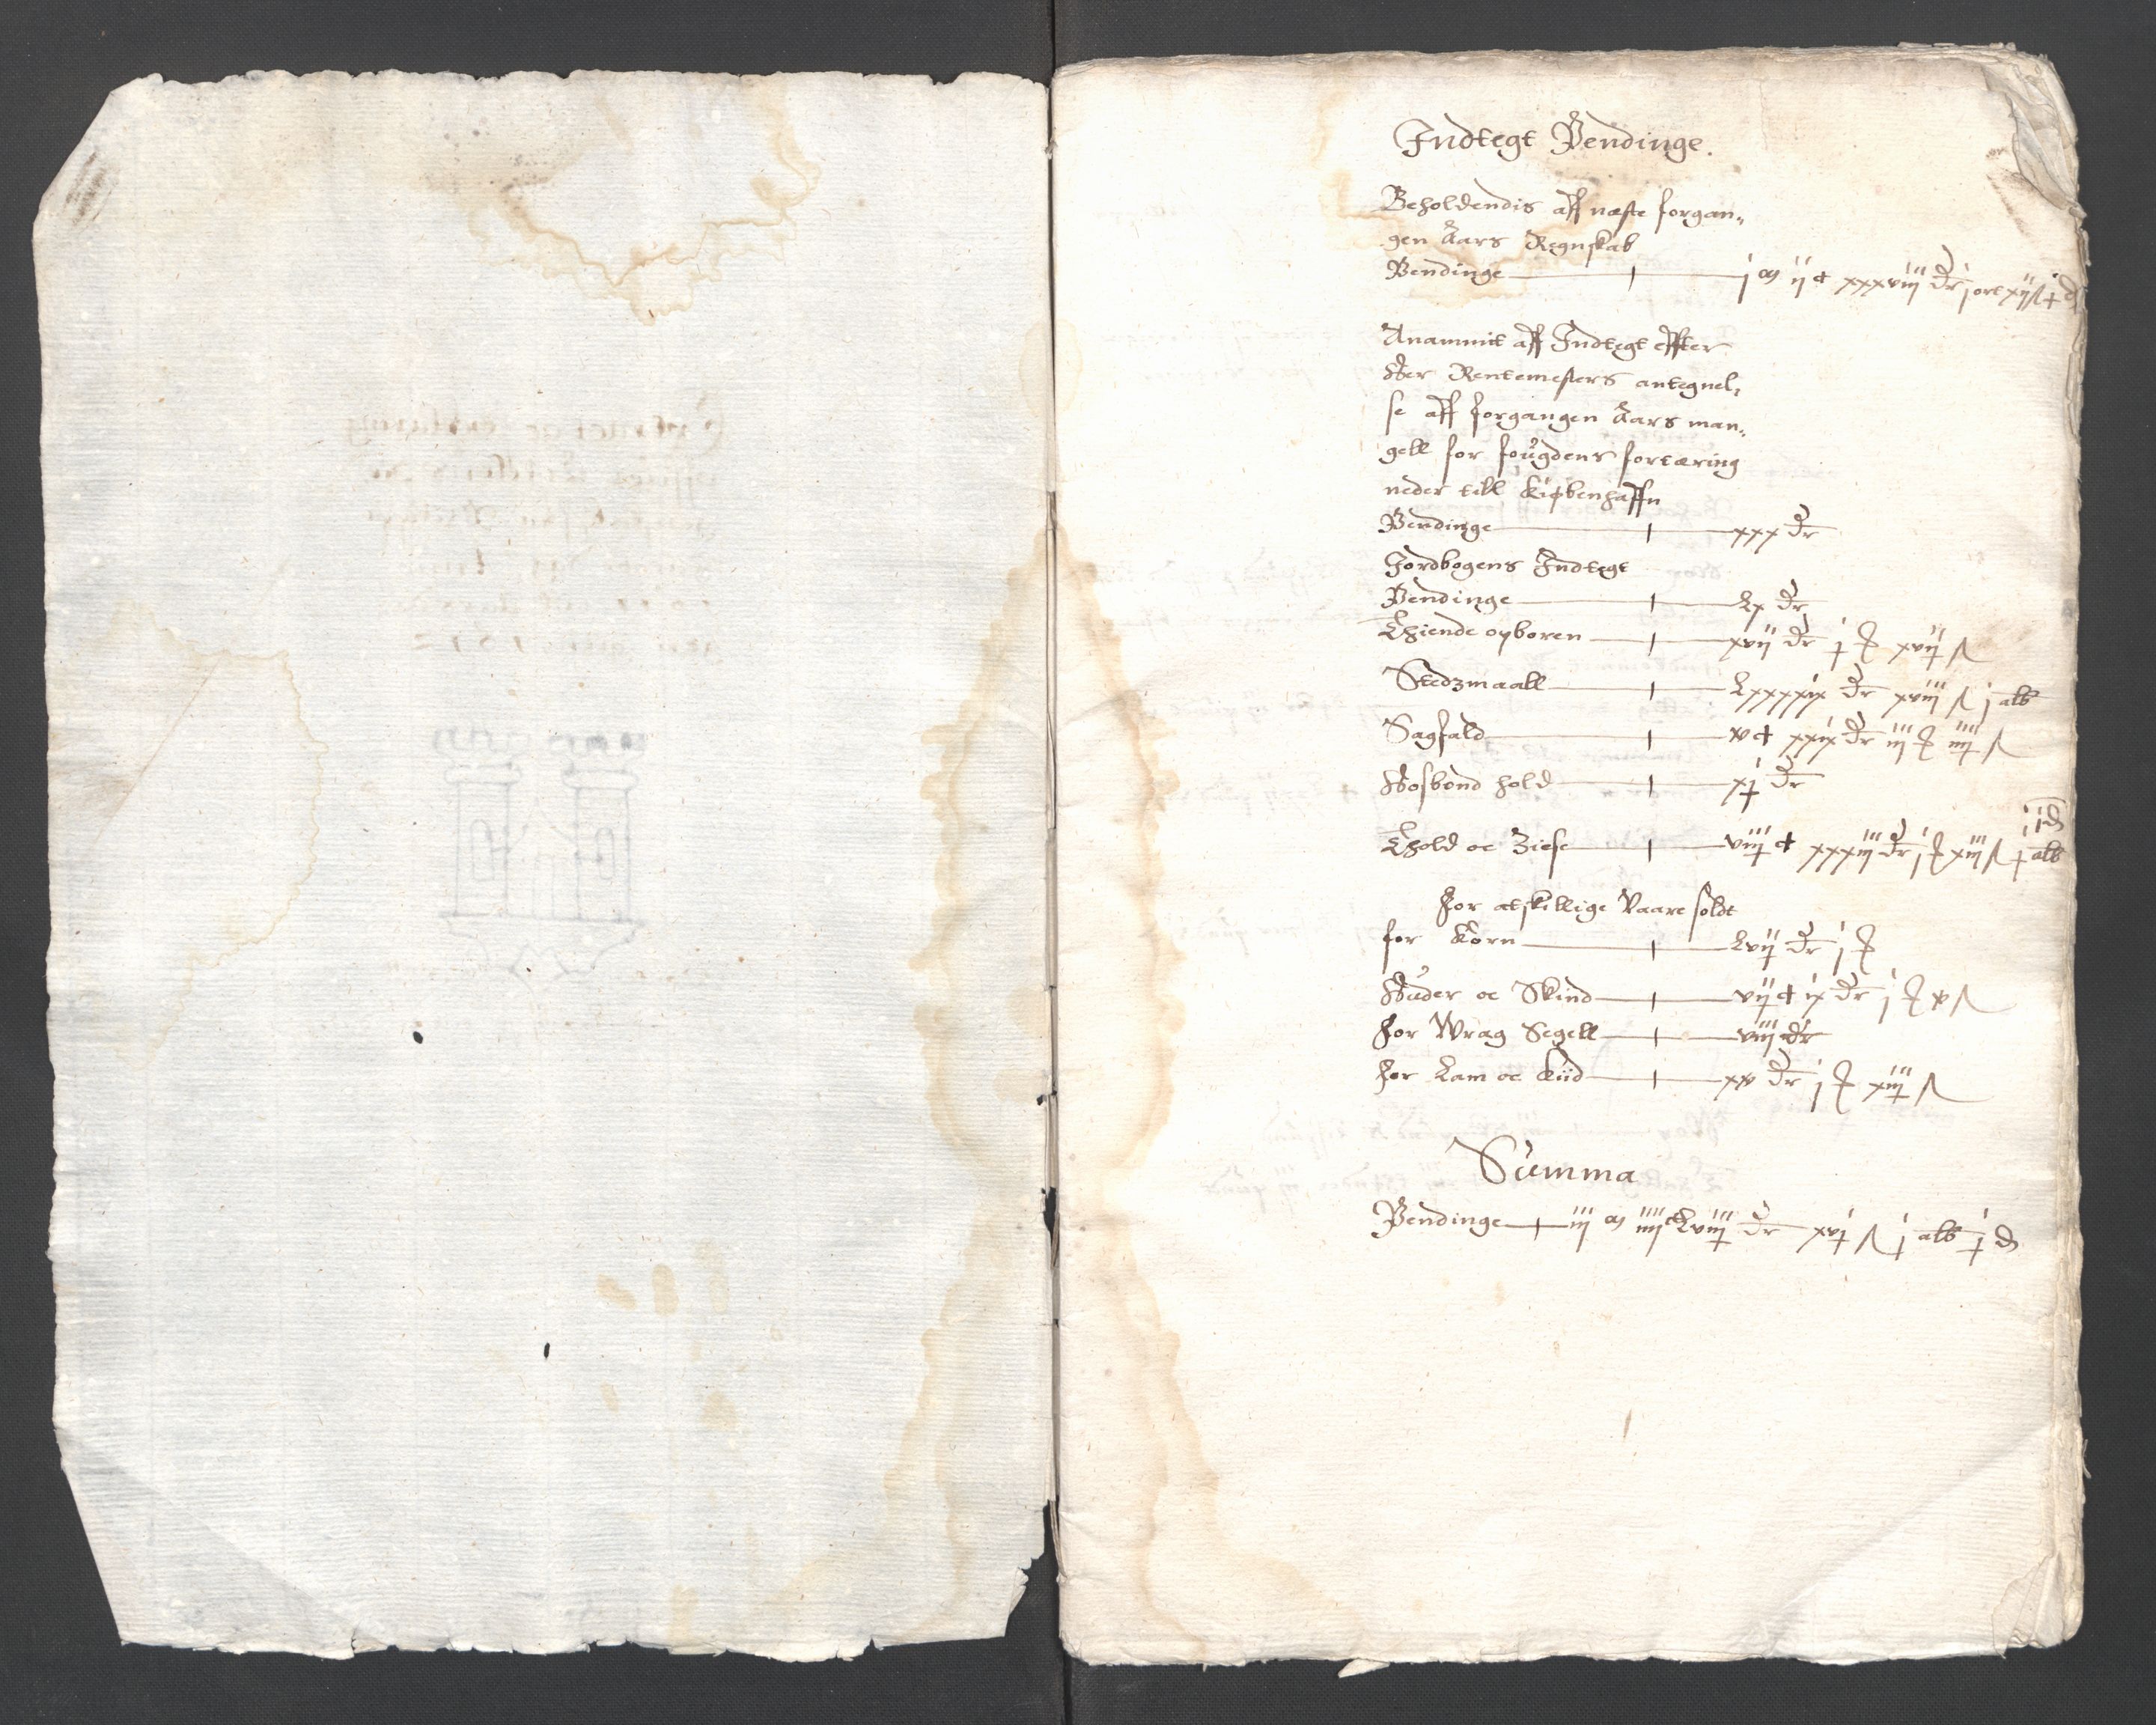 Indtegt Pendinge.
Beholdendis aff næste forgan„
gen Aars Regnskab
Pendinge — j m ij c xxxviij dr j ort xij ß j d
Anammit aff Indtegt effter
Her Rentemesters antegnel„
se aff forgangen Aars man„
gell for fougdens fortæring
neder till Kiøbenhaffn
Pendinge — xxx dr
Jordbogens Indtegt
Pendinge — Lx dr
Thiende opboren — xvij dr j xvij ß
Stedzmaall — Lxxxxix dr xviij ß j alb
Sagfald — v c xxix dr iij iiij ß
Hosbond hold — xj dr
ij d
Thold oc Ziese — viij c xxxiij dr j xiij ß j alb
For atskillige Vaare soldt
for Korn — Lvij dr j
Huder oc Skind — vij c ix dr j v ß
For Wrag Segell — viij dr
For Lam oc Kiid — xv dr j xiij ß
Summa
Pendinge — iij m iiij c Lviij dr xvj ß j alb j d